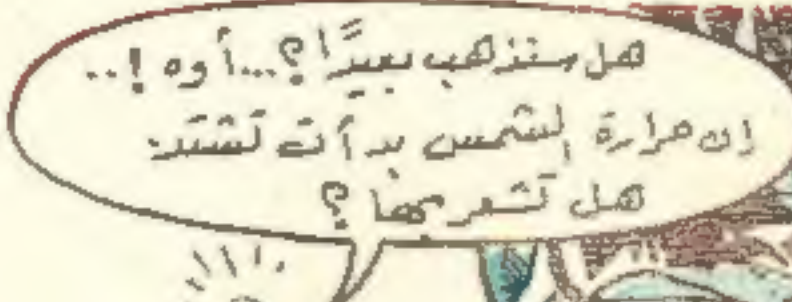 هل سنذهب بعيدًا؟...أوه !..
إن حرارة الشمس بدأت تشتد
هل تشعر بها ؟